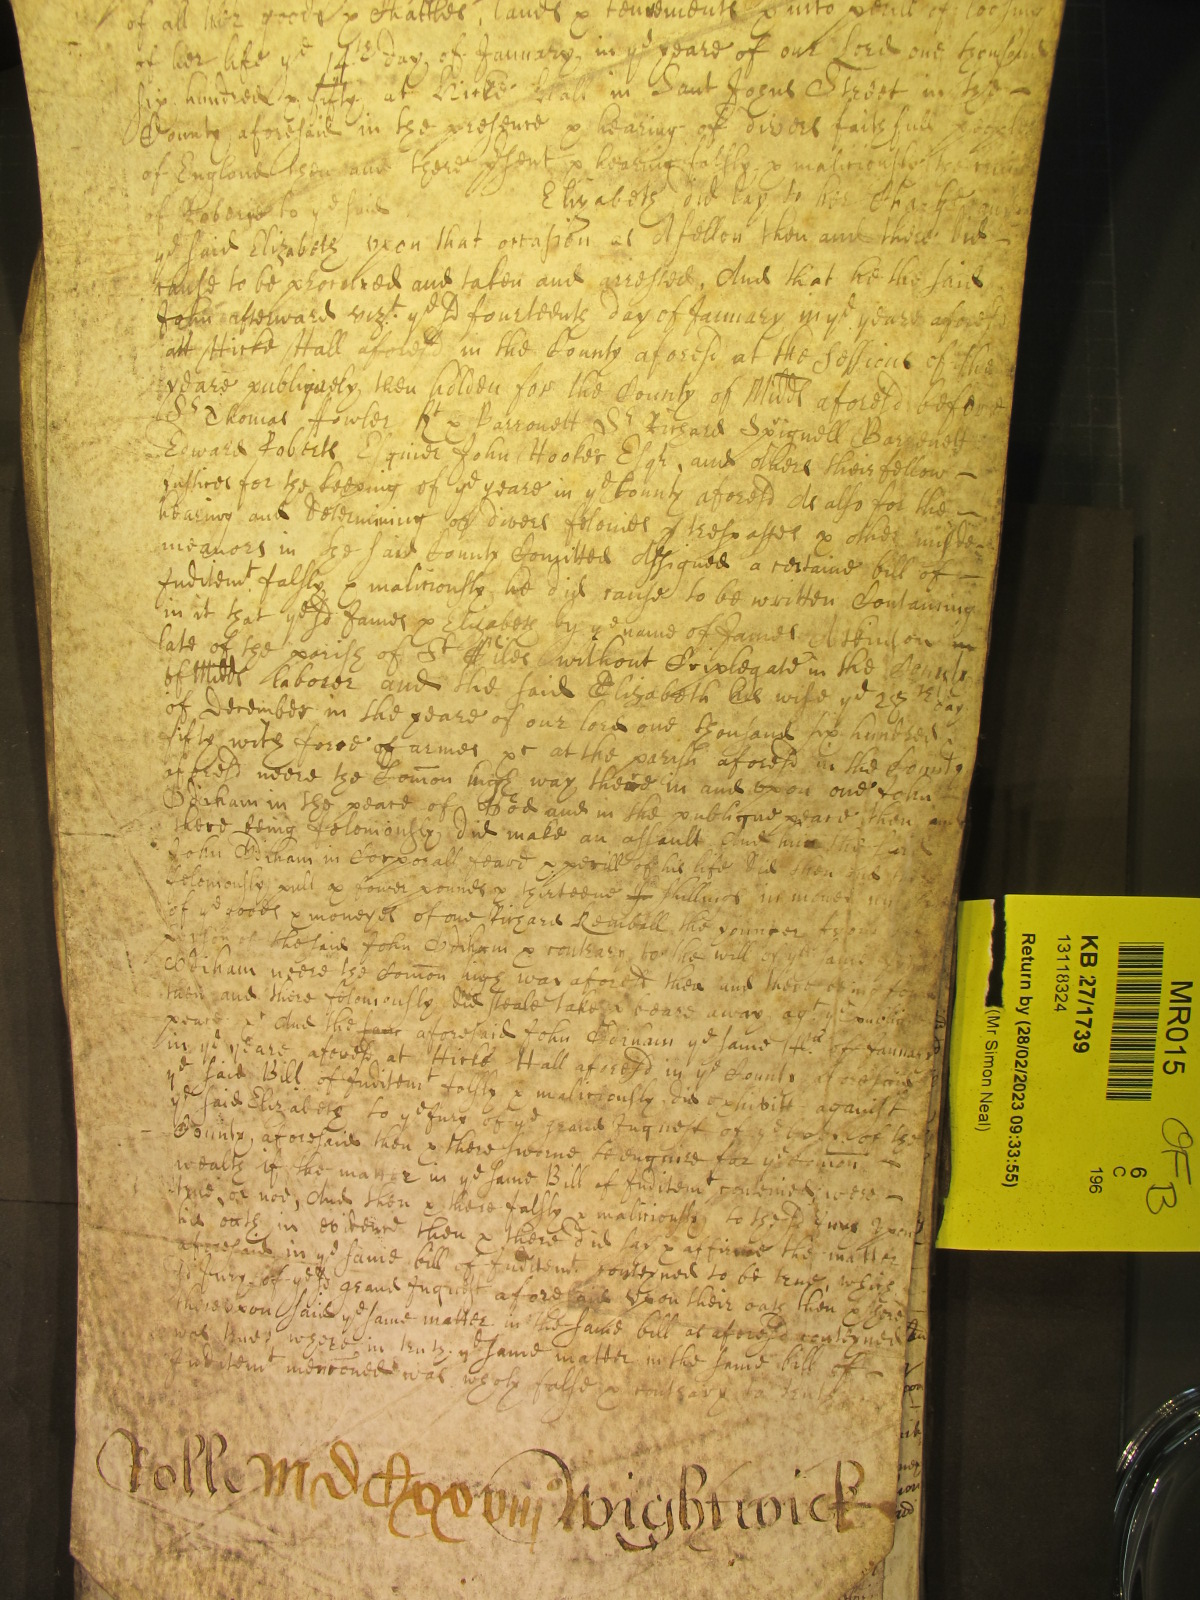 of all her goods & Chattles, lands & tenements & into perill of loosing
of her life ye 14th day of January in ye yeare of our Lord one thousand
six hundred & fifty at Hicke Hall in Saint Johns Street in the
County aforesaid in the presence & hearing of divers faithfull people
of England then and there psent & hearing falsly & maliciously the crime
of Robery to ye said Elizabeth did lay to her Charge
ye said Elizabeth upon that occasion as A fellon then and there did
cause to be procured and taken and arrested, And that he the said
John afterward vizt. ye sd fourteenth day of January in ye yeare aforesd
att Hicke Hall aforesd in the County aforesd at the Sessions of the
peace publiquely then holden for the County of Midds aforesd before
Sr Thomas Fowler Kt & Barronett Sr Richard Spignell Barronett
Edward Roberts Esquier John Hooker Esqr. and others their fellow
Justices for the keeping of ye peace in ye County aforesd As also for the
hearing and determining of divers felonies trespasses & other misde-
meanors in the said County Comitted Assigned a certaine bill of
Inditemt. falsly & maliciously he did cause to be written Contayning
in it that ye sd James & Elizabeth by ye name of James Atkinson
late of the parish of St Giles without Criplegate in the County
of Midds Laborer and the said Elizabeth his wife ye 23th day
of December in the yeare of our lord one thousand six hundred
fifty with force & armes &c at the parish aforesd in the County
aforesd neere the Comon high way there in and upon one John
Odiham in the peace of God and in the publique peace then and
there being felomously did make an assault And him the said
John Odiham in Corporall feare & perill of his life did then and there
felomously putt & fower pounds & thirteene shillings in money
of ye goods & moneyes of one Richard Kemball the younger from
person of the said John Odiham & contrary to the will of ye said
Odiham neere the Comon high way aforesd then and there
then and there felomously did steale take & carry away agt ye publique
peace &c And the aforesaid John Odiham ye same 14th of January
in ye yeare aforesd at Hicke Hall aforesd in ye County aforesaid
ye said Bill of Inditemt falsly & maliciously did exhibitt against
ye said Elizabeth to ye Jury of ye grand Inquest of ye of the
County aforesaid then & there sworne to enquire for ye Comon
wealth if the matter in ye same Bill of Inditemt conteined were
true or noe, And then & there falsly & maliciously to the sd Jury upon
his oath in evidence then & there did say & affirme the matter
aforesaid in ye same bill of Inditemt conteyned to be true, which
sd Jury of ye sd grand Inquest aforesaid upon their oath then & there
thereupon said ye same matter in the same bill as aforesd conteyned
was true, where in truth ye same matter in the same bill of
Inditemt mencōned was wholy false & contrary to truth
Rolle MDCCxxxviiij Wightwick
MR015
KB 27/1739
13118324
Return by (28/02/2023 09:33:55)
(Mr Simon Neal)
6
C
196
OFB